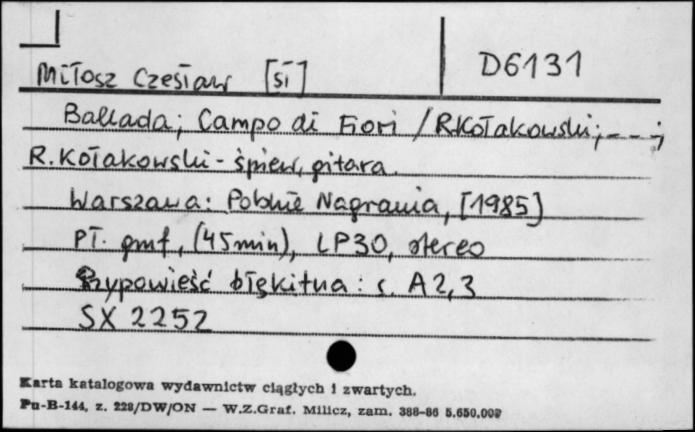 Miłosz Czesław [sł] D6131
Ballada; Campo di Fiori / R.Kołakowski; - - -;
R. Kołakowski - śpiew, gitara.
Warszawa: Polskie Nagrania, [1985]
Pł. gmf., (45min), LP30, stereo
Przypowieść błękitna: s. A2,3
SX 2252
Karta katalogowa wydawnictw ciągłych i zwartych.
Pu-B-144, z. 228/DW/ON — W.Z.Graf. Milicz, zam. 388-86 5.650.000